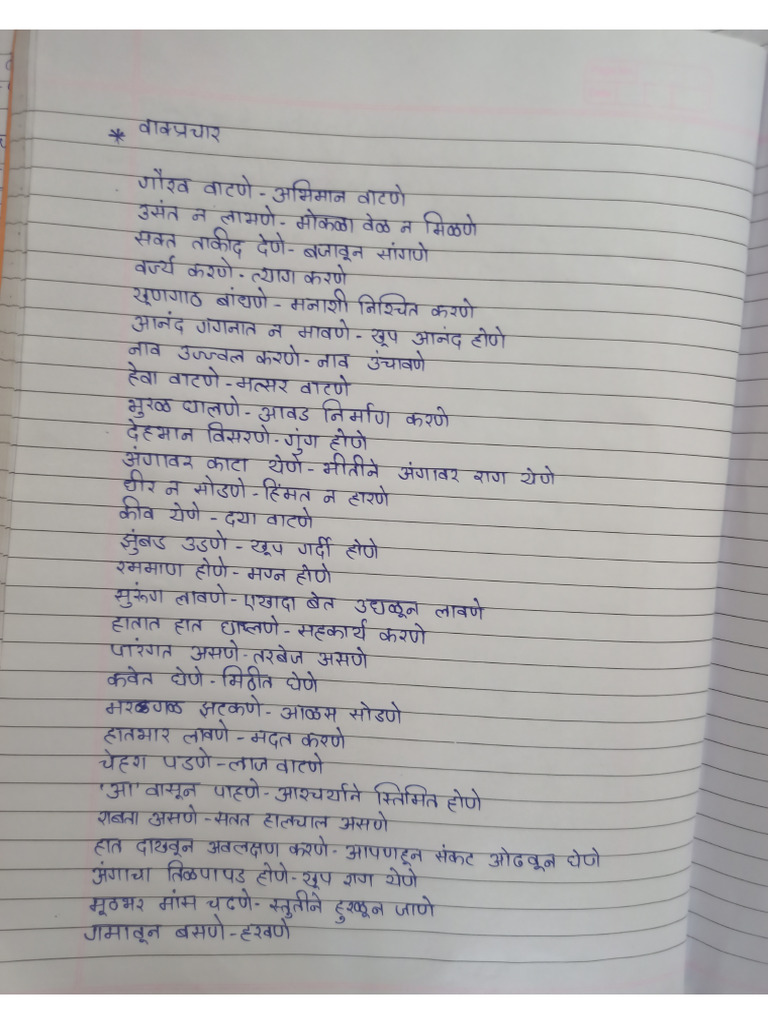 * वाक्प्रचार
गौरव वाटणे - अभिमान वाटणे
उसंत न लाभणे - मोकळा वेळ न मिळणे
सक्त ताकीद देणे - बजावून सांगणे
वर्ज्य करणे - त्याग करणे
खूणगाठ बांधणे - मनाशी निश्चित करणे
आनंद गगनात न मावणे - खूप आनंद होणे
नाव उज्ज्वल करणे - नाव उंचावणे
हेवा वाटणे - मत्सर वाटणे
भुरळ घालणे - आवड निर्माण करणे
देहभान विसरणे - गुंग होणे
अंगावर काटा येणे - भीतीने अंगावर राग येणे
धीर न सोडणे - हिंमत न हारणे
कीव येणे - दया वाटणे
झुंबड उडणे - खूप गर्दी होणे
रममाण होणे - मग्न होणे
सुरूंग लावणे - एखादा बेत उधळून लावणे
हातात हात घालणे - सहकार्य करणे
पारंगत असणे - तरबेज असणे
कवेत घेणे - मिठीत घेणे
मरगळ झटकणे - आळस सोडणे
हातभार लावणे - मदत करणे
चेहरा पडणे - लाज वाटणे
'आ' वासून पाहणे - आश्चर्याने स्तिमित होणे
राबता असणे - सतत हालचाल असणे
हात दाखवून अवलक्षण करणे - आपणहून संकट ओढवून घेणे
अंगाचा तिळपापड होणे - खूप राग येणे
मूठभर मांस चढणे - स्तुतीने हुरळून जाणे
गमावून बसणे - हरवणे